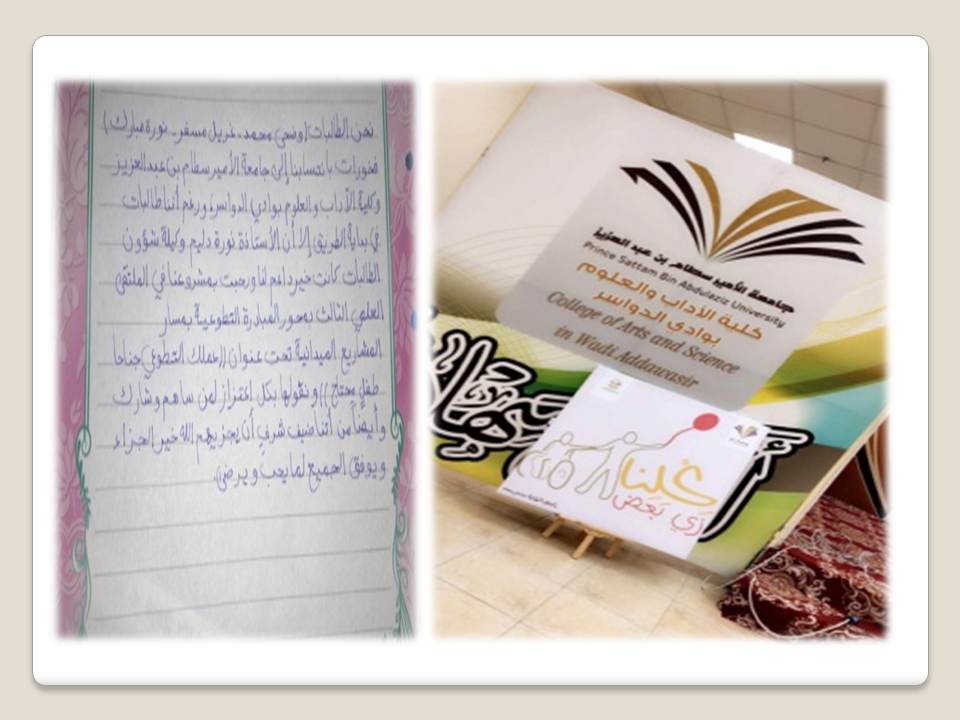 نحن الطالبات (وضحى محمد - غزيل مسفر - نورة مبارك)
فخورات بانتسابنا إلى جامعة الأمير سطام بن عبدالعزيز
وكلية الآداب والعلوم بوادي الدواسر ورغم أننا طالبات
في بداية الطريق إلا أن الأستاذة نورة دليم وكيلة شؤون
الطالبات كانت خير داعم لنا ورحبت بمشروعنا في الملتقى
العلمي الثالث بمحور المبادرة التطوعية بمسار
المشاريع الميدانية تحت عنوان ((عملك التطوعي جناحا
طفل محتاج)) ونقولها بكل اعتزاز لمن ساهم وشارك
وأيضاً من أتنا ضيف شرف أن يجزيهم الله خير الجزاء
ويوفق الجميع لما يحب ويرضى
جامعة الأمير سطام بن عبد العزيز
Prince Sattam Bin Abdulaziz University
كلية الآداب والعلوم
بوادي الدواسر
College of Arts and Science
in Wadi Addawasir
كلنا
زي بعض